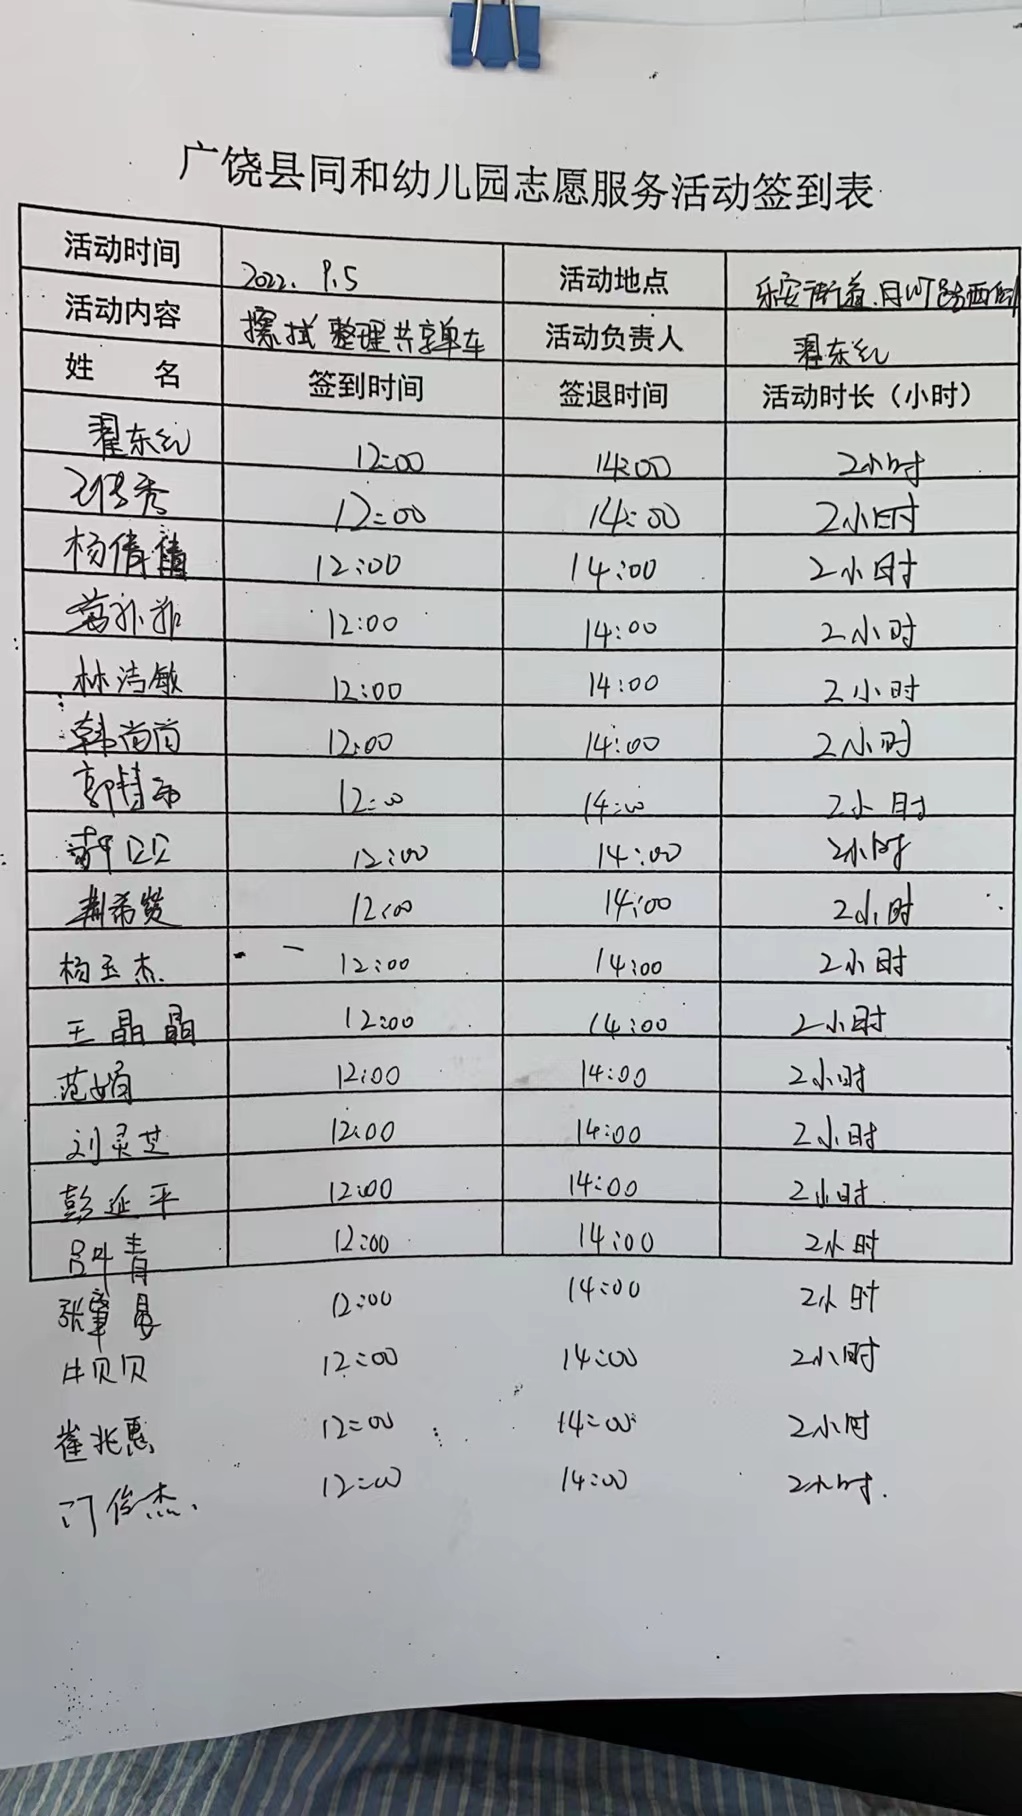 广饶县同和幼儿园志愿服务活动签到表
活动时间 2022. 9.5 活动地点 乐安街道
活动内容 擦拭整理共享单车 活动负责人 翟东红
姓 名 签到时间 签退时间 活动时长（小时）
翟东红 12:00 14:00 2小时
12:00 14:00 2小时
杨倩倩 12:00 14:00 2小时
12:00 14:00 2小时
林洁敏 12:00 14:00 2小时
韩尚尚 12:00 14:00 2小时
12:00 14:00 2小时
12:00 14:00 2小时
12:00 14:00 2小时
杨玉杰 12:00 14:00 2小时
王晶晶 12:00 14:00 2小时
范娟 12:00 14:00 2小时
刘灵芝 12:00 14:00 2小时
彭延平 12:00 14:00 2小时
吕叶青 12:00 14:00 2小时
张肇晏 12:00 14:00 2小时
牛贝贝 12:00 14:00 2小时
崔兆惠 12:00 14:00 2小时
门俊杰. 12:00 14:00 2小时.